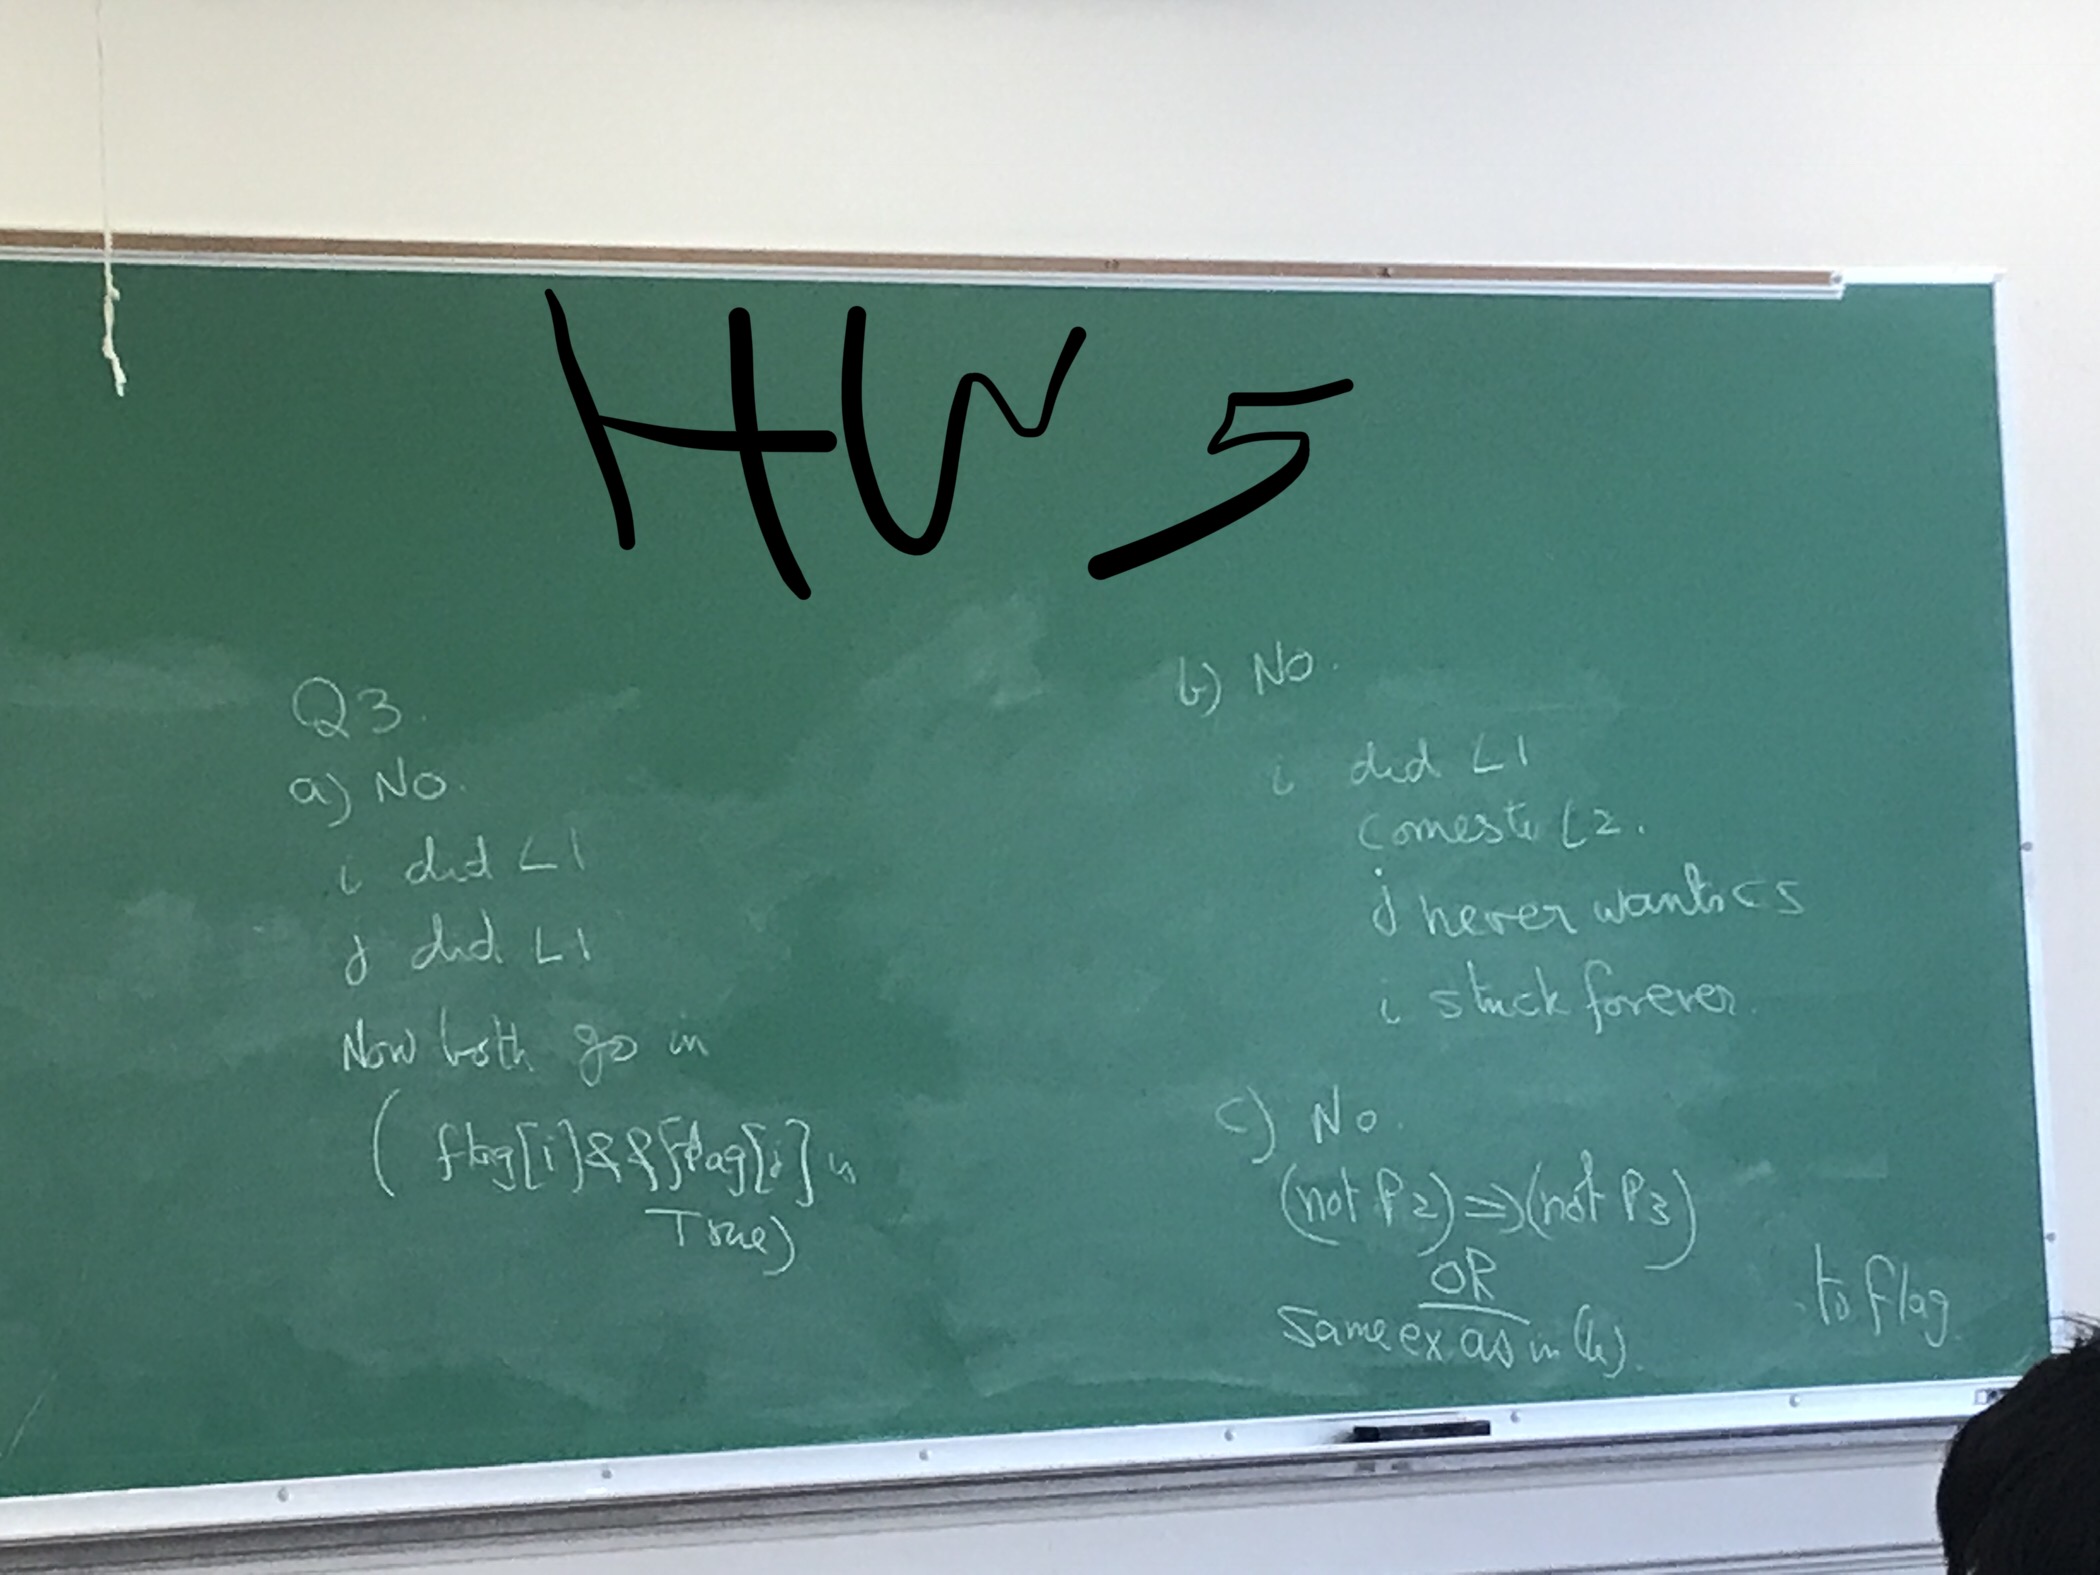 HW 5
Q3.
a) No.
i did L1
j did L1
Now both go in
( flag[i] && flag[j] is
True)
b) No.
i did L1
comes to L2.
j never wants CS
i stuck forever.
c) No.
(not P2) => (not P3)
OR
Same ex as in (b).
to flag